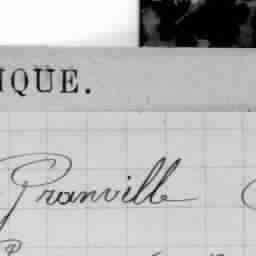 NQUE.
Granville